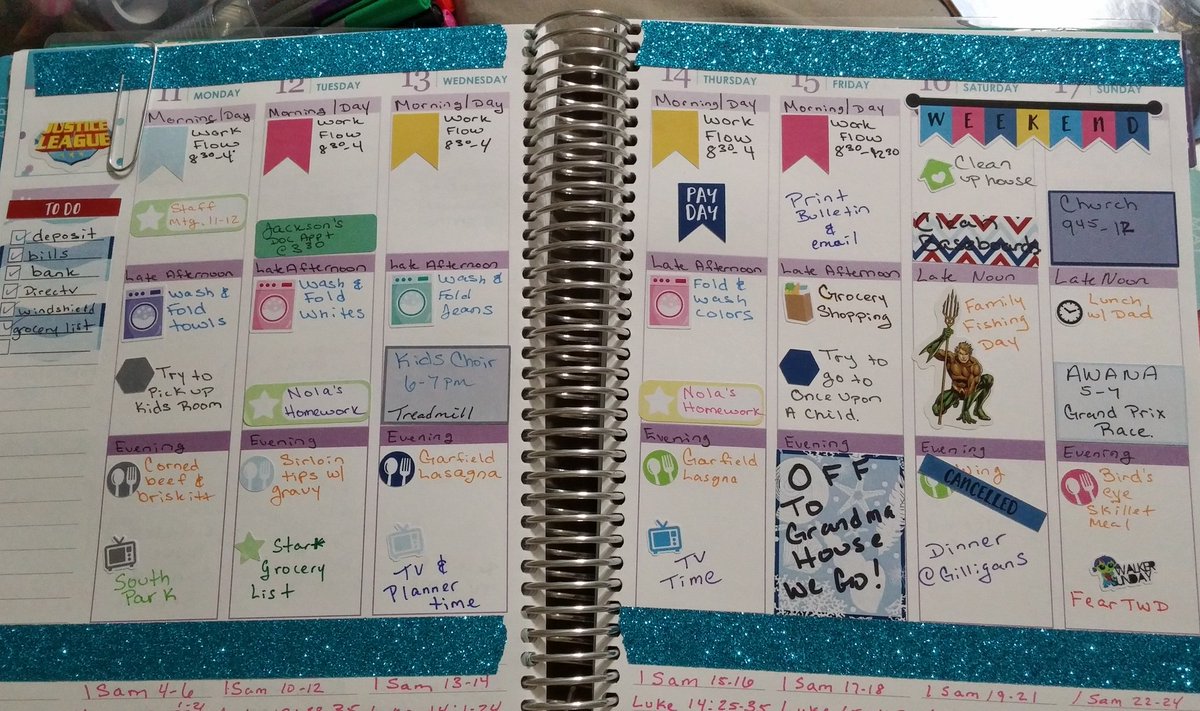 JUSTICE
LEAGUE
TO DO
deposit
bills
bank
Directv
windshield
grocery list
11 MONDAY
Morning/Day
Work
Flow
830-4
Staff
Mtg. 11-12
Late Afternoon
Wash &
Fold
towls
Try to
Pick up
Kids Room
Evening
Corned
beef &
briskitt
South
Park
12 TUESDAY
Morning/Day
Work
Flow
830-4
Jackson's
Doc Appt
@ 330
Late Afternoon
Wash &
Fold
Whites
Nola's
Homework
Evening
Sirloin
tips w/
gravy
Start
Grocery
List
13 WEDNESDAY
Morning/Day
Work
Flow
830-4
Late Afternoon
Wash &
Fold
Jeans
Kids Choir
6-7pm
Treadmill
Evening
Garfield
Lasagna
TV &
Planner
time
14 THURSDAY
Morning/Day
Work
Flow
830-4
PAY
DAY
Late Afternoon
Fold &
Wash
colors
Nola's
Homework
Evening
Garfield
Lasgna
TV
Time
15 FRIDAY
Morning/Day
Work
Flow
Print
Bulletin
&
email
Late Afternoon
Grocery
Shopping
Try to
go to
Once Upon
A Child.
OFF
To
Grandma
House
We Go!
16 SATURDAY
WEEKEND
Clean
up house
Clean
Late Noon
Family
Fishing
Day
Evening
CANCELLED
Dinner
@Gilligans
17 SUNDAY
Church
945-12
Late Noon
Lunch
w/ Dad
AWANA
5-7
Grand Prix
Race.
Evening
Bird's
eye
Skillet
Meal
WALKER
SUNDAY
Fear TWD
1 Sam 4-6
1 Sam 10-12
1 Sam 13-14
1 Sam 15-16
1 Sam 17-18
1 Sam 19-21
1 Sam 22-24
Luke 14:25-35